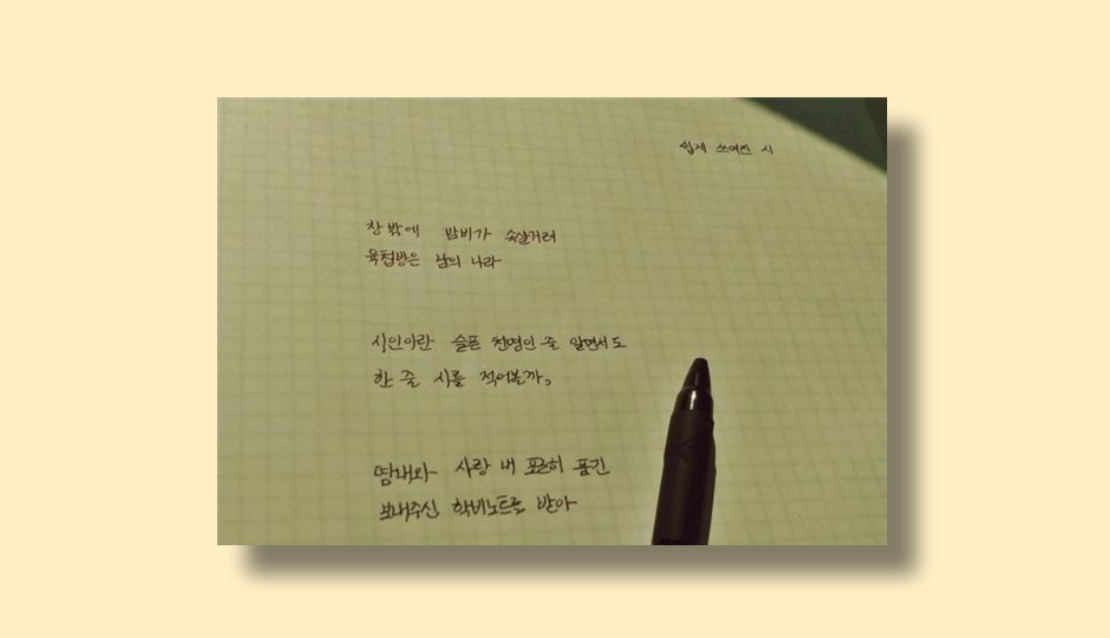 쉽게 쓰여진 시
창 밖에 밤비가 속살거려
육첩방은 남의 나라
시인이란 슬픈 천명인 줄 알면서도
한 줄 시를 적어볼까.
땀내와 사랑 내 포근히 품긴
보내주신 학비노트를 받아